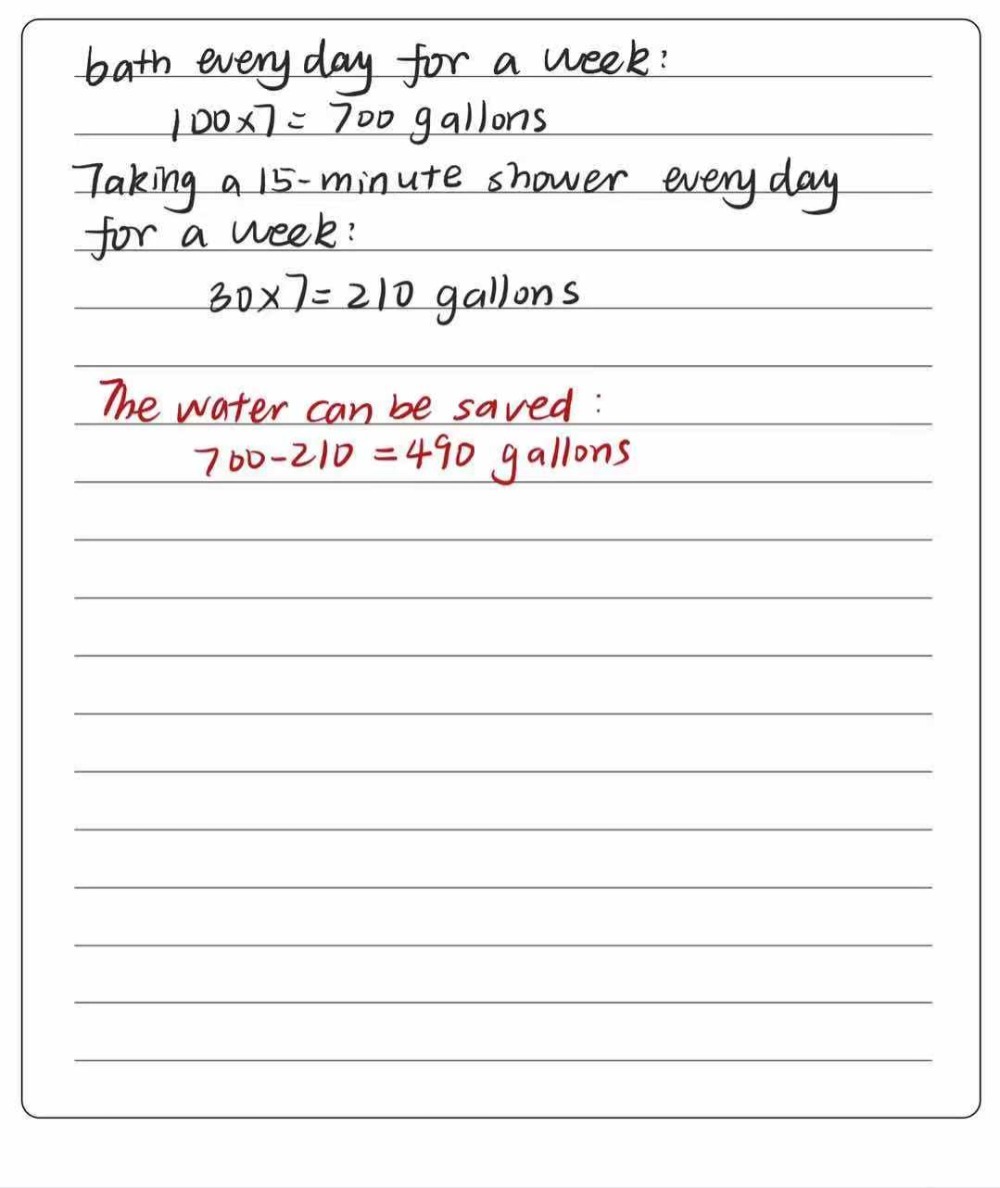 bath every day for a week:
100×7= 700 gallons
Taking a 15-minute shower every day
for a week:
30×7=210 gallons
The water can be saved:
700-210 =490 gallons